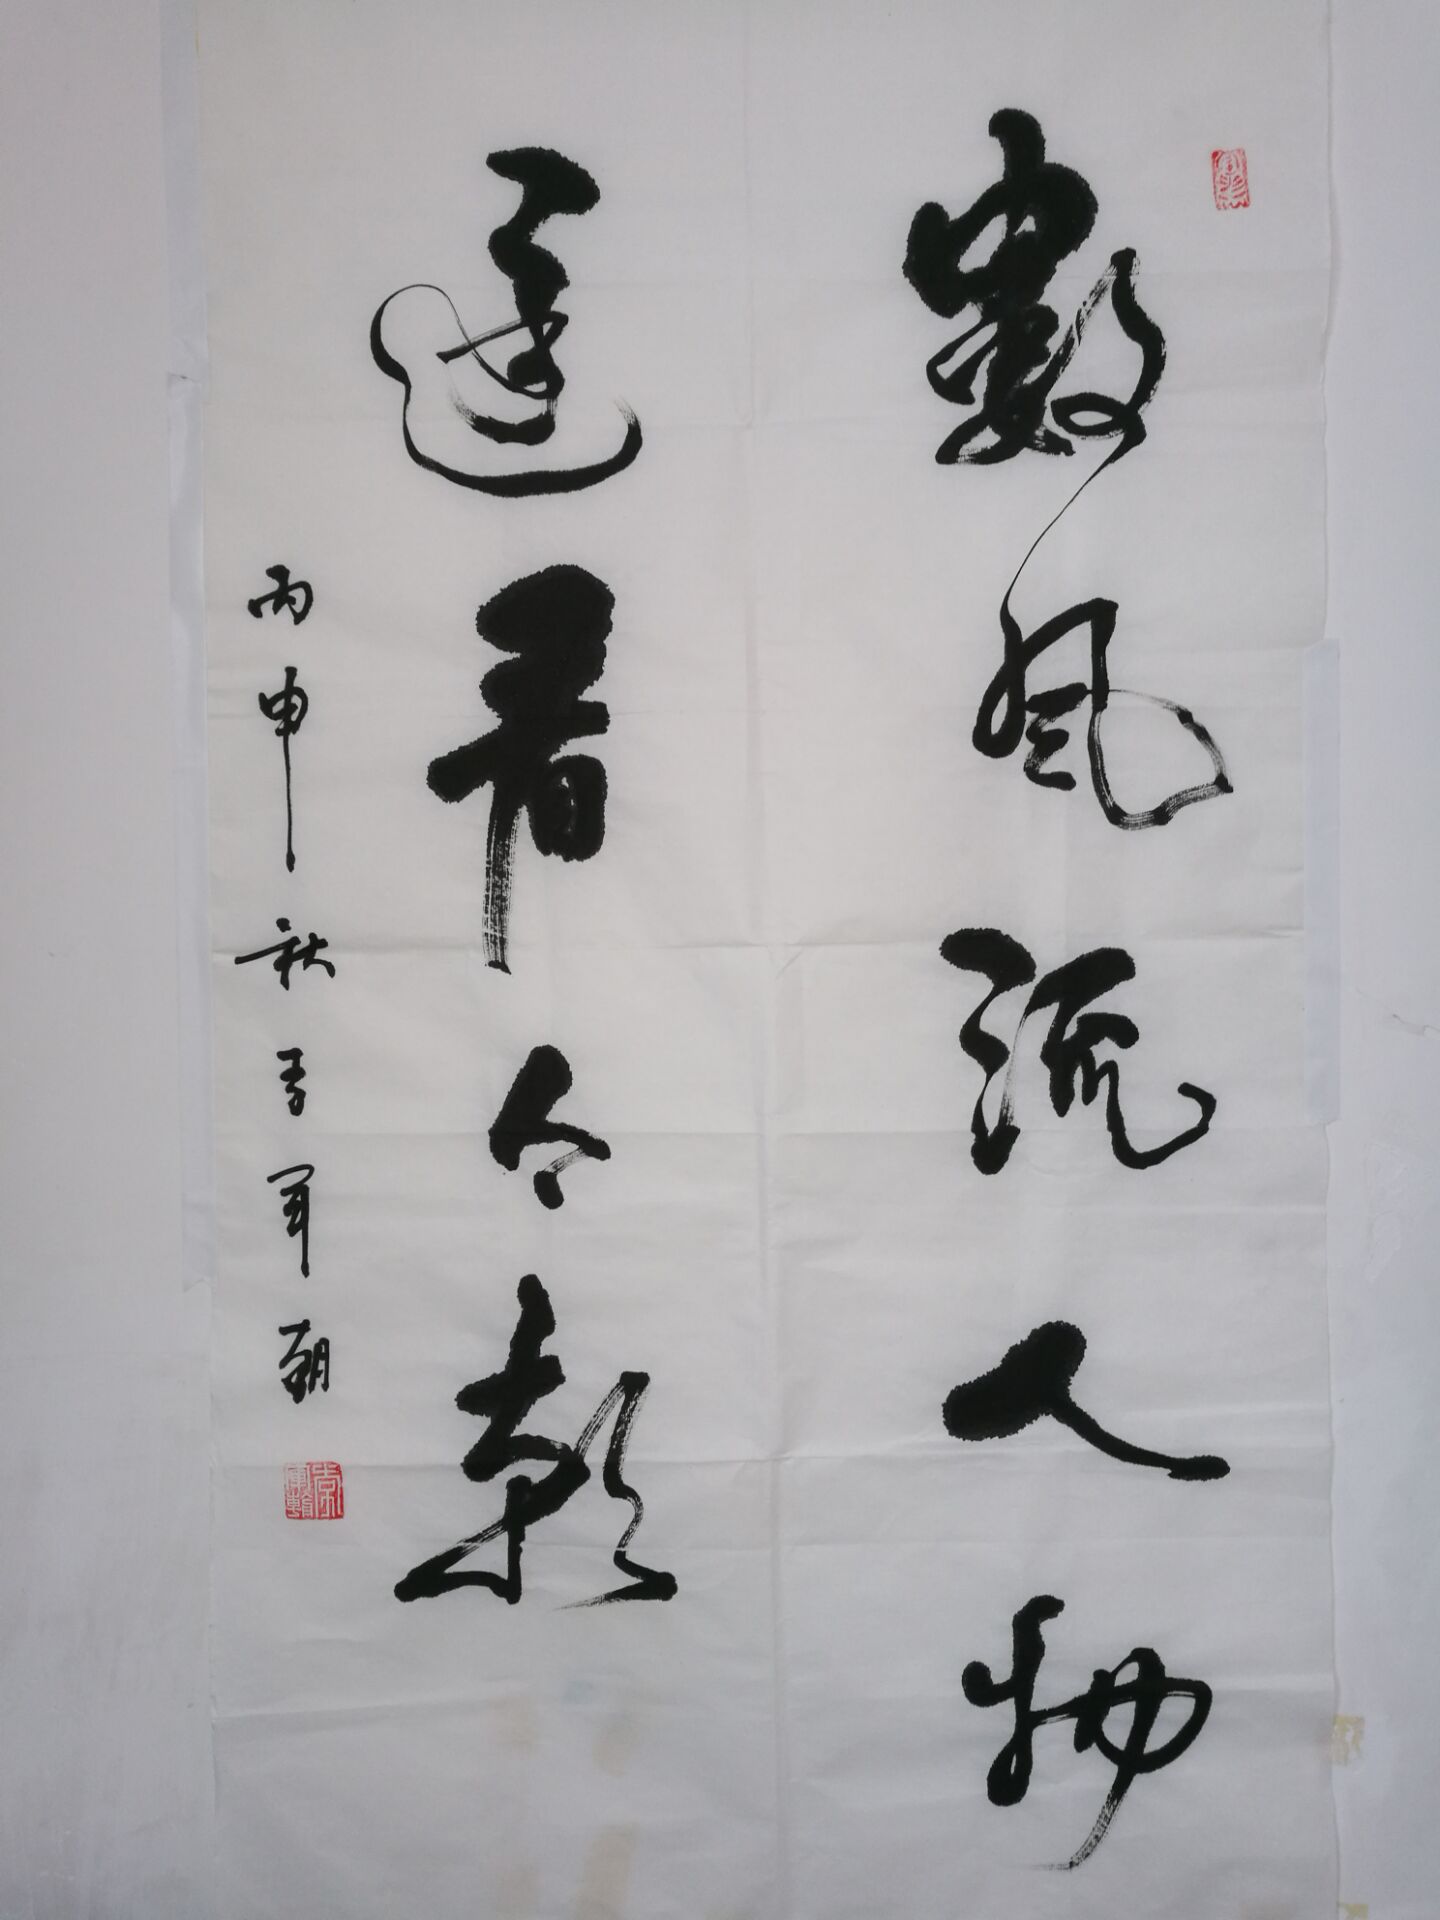 數風流人物
還看今朝
丙申秋 軍朝